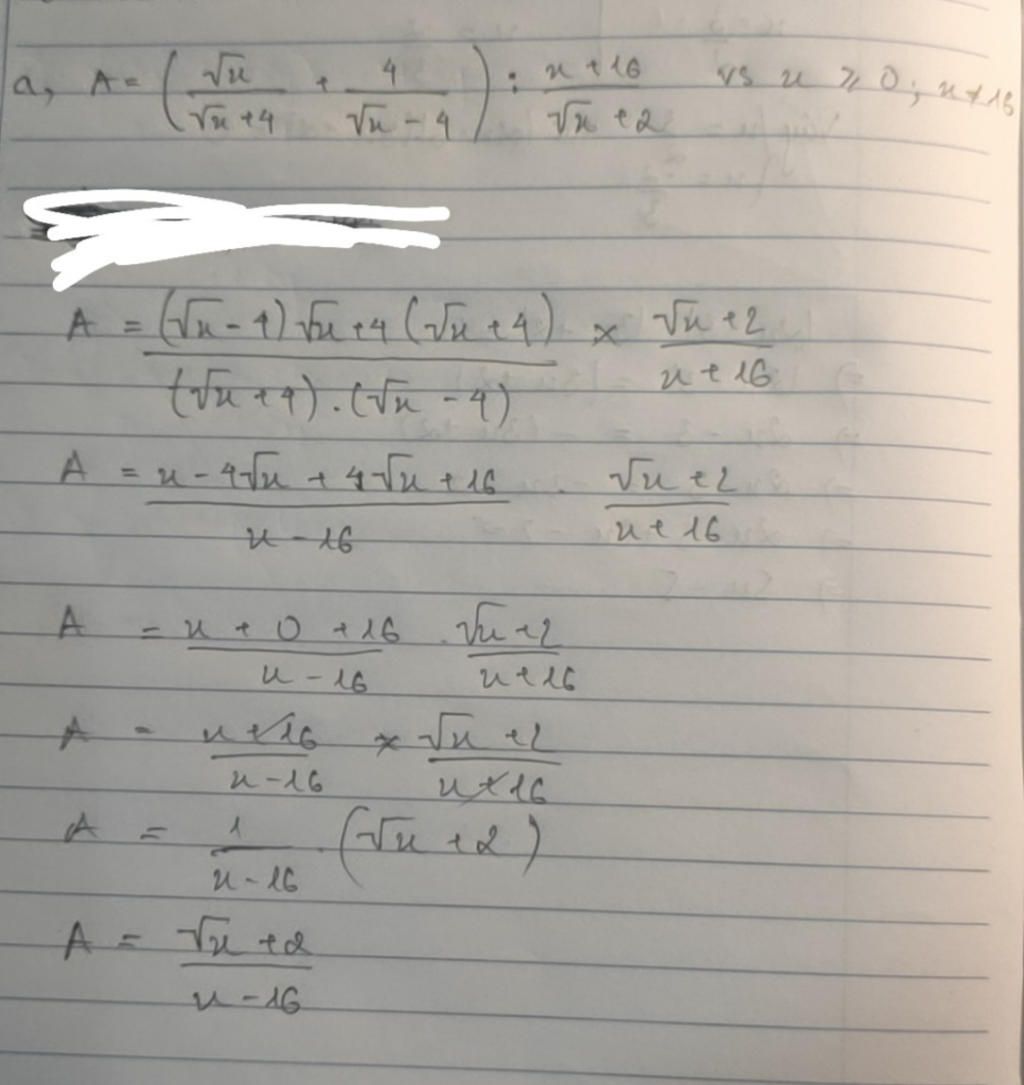 a, A = (√x/(√x+4) + 4/(√x-4)) : (x+16)/(√x+2) vs x ≥ 0; x ≠ 16
A = ((√x-4)√x+4(√x+4))/((√x+4).(√x-4)) × (√x+2)/(x+16)
A = (x-4√x+4√x+16)/(x-16) . (√x+2)/(x+16)
A = (x+0+16)/(x-16) . (√x+2)/(x+16)
A = (x+16)/(x-16) × (√x+2)/(x+16)
A = 1/(x-16) . (√x+2)
A = (√x+2)/(x-16)